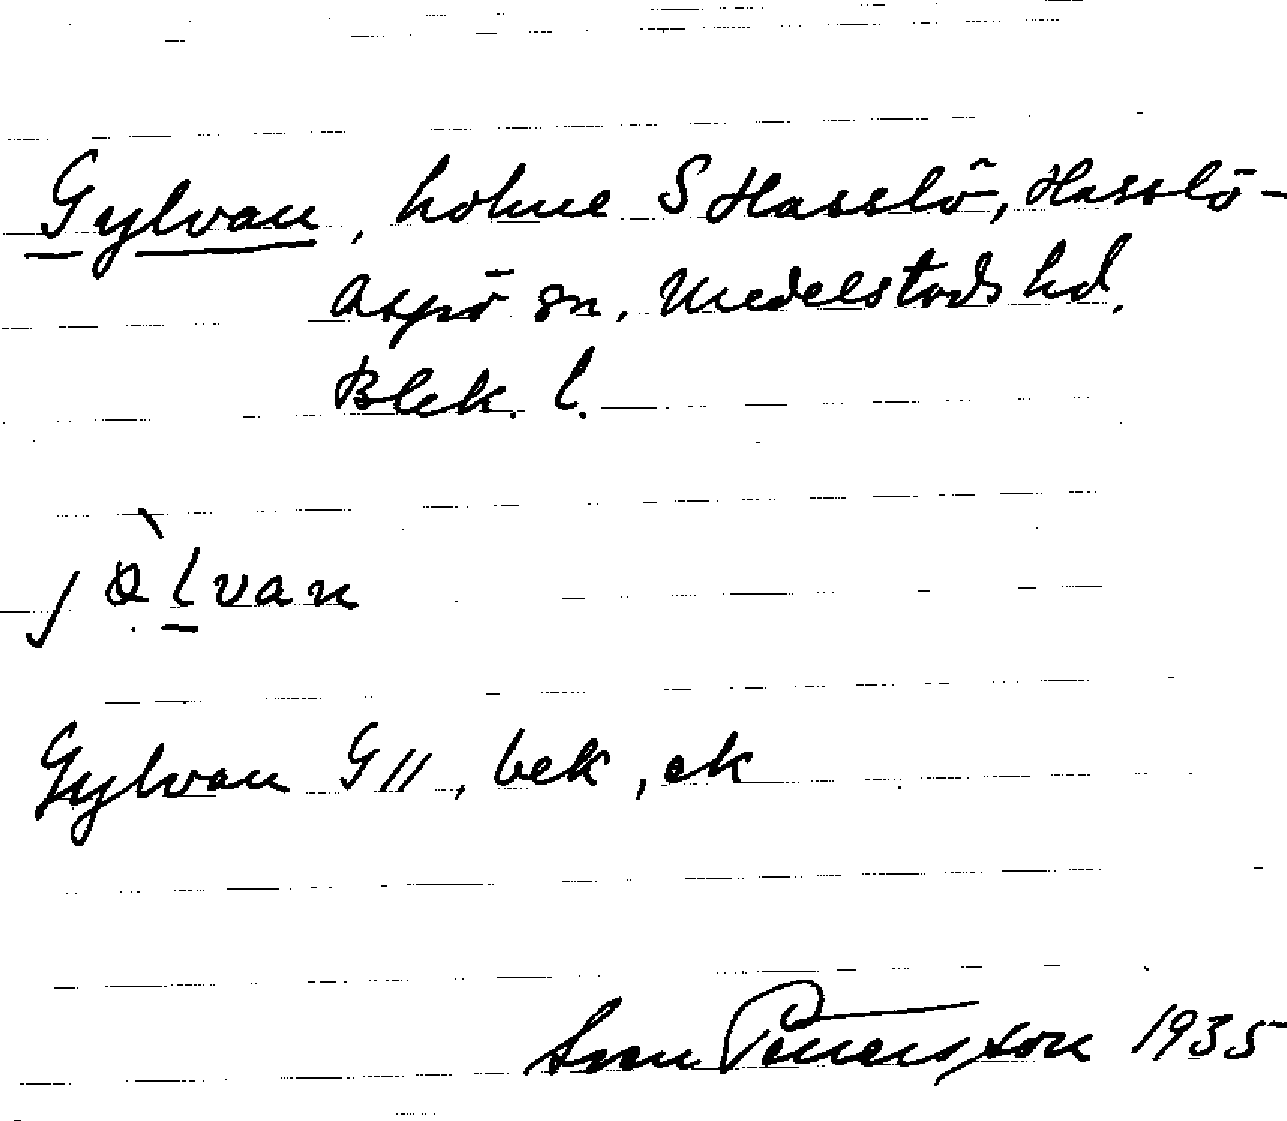 Gylvan, holme S Hasslö, Hasslö-
Aspö sn. Medelstads hd.
Blek. l.
Gylvan G II, bek, ek
Sven Pettersson 1935